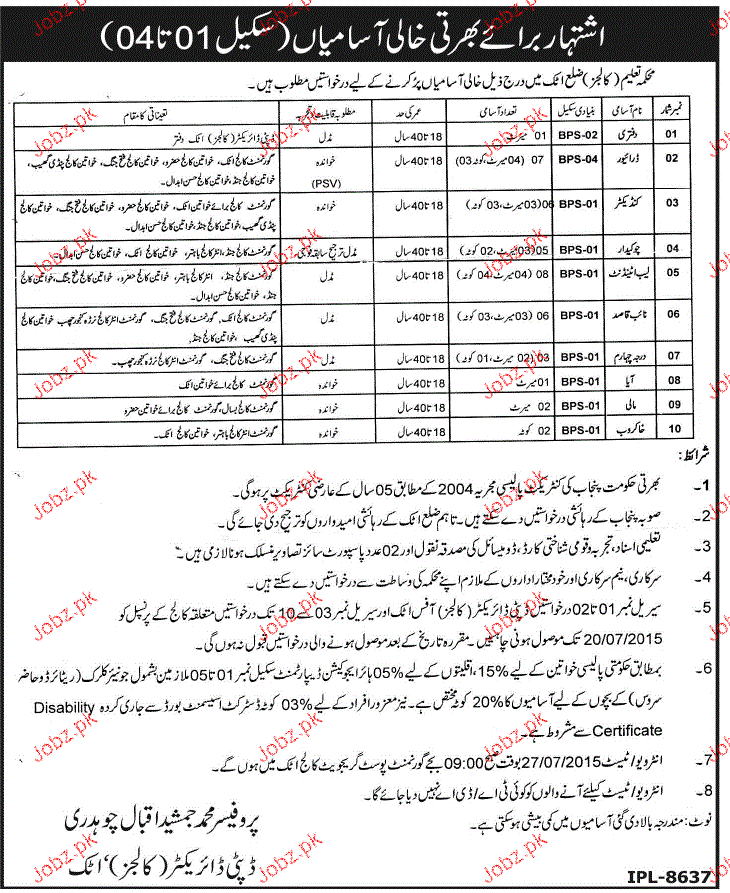 اشتہار برائے بھرتی خالی آسامیاں (سکیل 01 تا 04)
محکمہ تعلیم (کالجز) ضلع اٹک میں درج ذیل خالی آسامیاں پُر کرنے کے لیے درخواستیں مطلوب ہیں۔
نمبر شمار نام آسامی بنیادی سکیل تعداد آسامی عمر کی حد مطلوبہ قابلیت و تجربہ تعیناتی کا مقام
01 دفتری BPS-02 01 میرٹ 18 تا 40 سال مڈل ڈپٹی ڈائریکٹر (کالجز) اٹک دفتر
02 ڈرائیور BPS-04 07 (04 میرٹ، کوٹہ 03) 18 تا 40 سال خواندہ (PSV) گورنمنٹ کالج اٹک، خواتین کالج اٹک، خواتین کالج حضرو، خواتین کالج فتح جنگ، خواتین کالج پنڈی گھیب،
خواتین کالج جنڈ، خواتین کالج حسن ابدال۔
03 کنڈیکٹر BPS-01 06 (03 میرٹ، 03 کوٹہ) 18 تا 40 سال خواندہ گورنمنٹ کالج برائے خواتین اٹک، خواتین کالج حضرو، خواتین کالج فتح جنگ، خواتین کالج
پنڈی گھیب، خواتین کالج جنڈ، خواتین کالج حسن ابدال۔
04 چوکیدار BPS-01 05 (03 میرٹ، 02 کوٹہ) 18 تا 40 سال مڈل ترجیح سابقہ فوجی گورنمنٹ کالج جنڈ، انٹر کالج باہتر، خواتین کالج اٹک، خواتین کالج حسن ابدال۔
05 لیب اٹینڈنٹ BPS-01 08 (04 میرٹ، 04 کوٹہ) 18 تا 40 سال مڈل گورنمنٹ کالج جنڈ، انٹر کالج باہتر، خواتین کالج حضرو، خواتین کالج فتح جنگ، خواتین کالج
جنڈ، خواتین کالج حسن ابدال۔
06 نائب قاصد BPS-01 06 (03 میرٹ، 03 کوٹہ) 18 تا 40 سال مڈل گورنمنٹ کالج اٹک، گورنمنٹ کالج فتح جنگ، گورنمنٹ انٹر کالج نڑہ کنجور چھب، خواتین کالج
پنڈی گھیب، خواتین کالج جنڈ،
07 درجہ چہارم BPS-01 03 (02 میرٹ، 01 کوٹہ) 18 تا 40 سال مڈل گورنمنٹ کالج فتح جنگ، گورنمنٹ انٹر کالج نڑہ کنجور چھب۔
08 آیا BPS-01 01 میرٹ 18 تا 40 سال خواندہ گورنمنٹ کالج برائے خواتین اٹک
09 مالی BPS-01 02 میرٹ 18 تا 40 سال خواندہ گورنمنٹ کالج بسال، گورنمنٹ کالج برائے خواتین حضرو
10 خاکروب BPS-01 02 کوٹہ 18 تا 40 سال خواندہ گورنمنٹ انٹر کالج باہتر، خواتین کالج اٹک۔
شرائط:
1۔ بھرتی حکومت پنجاب کی کنٹریکٹ پالیسی مجریہ 2004 کے مطابق 05 سال کے عارضی کنٹریکٹ پر ہوگی۔
2۔ صوبہ پنجاب کے رہائشی درخواستیں دے سکتے ہیں۔ تاہم ضلع اٹک کے رہائشی امیدواروں کو ترجیح دی جائے گی۔
3۔ تعلیمی اسناد، تجربہ و قومی شناختی کارڈ، ڈومیسائل کی مصدقہ نقول اور 02 عدد پاسپورٹ سائز تصاویر منسلک ہونا لازمی ہیں۔
4۔ سرکاری، نیم سرکاری اور خود مختار اداروں کے ملازم اپنے محکمہ کی وساطت سے درخواستیں دے سکتے ہیں۔
5۔ سیریل نمبر 01 تا 02 درخواستیں ڈپٹی ڈائریکٹر (کالجز) آفس اٹک اور سیریل نمبر 03 سے 10 تک درخواستیں متعلقہ کالج کے پرنسپل کو
20/07/2015 تک موصول ہونی چاہئیں۔ مقررہ تاریخ کے بعد موصول ہونے والی درخواستیں قبول نہ ہوں گی۔
6۔ بمطابق حکومتی پالیسی خواتین کے لیے 15%، اقلیتوں کے لیے 05% ہائر ایجوکیشن ڈیپارٹمنٹ سکیل نمبر 01 تا 05 ملازمین بشمول جونیئر کلرک (ریٹائرڈ و حاضر
سروس) کے بچوں کے لیے آسامیوں کا 20% کوٹہ مختص ہے۔ نیز معذور افراد کے لیے 03% کوٹہ ڈسٹرکٹ اسیسمنٹ بورڈ سے جاری کردہ Disability
Certificate سے مشروط ہے۔
7۔ انٹرویو/ ٹیسٹ 27/07/2015 بوقت صبح 09:00 بجے گورنمنٹ پوسٹ گریجویٹ کالج اٹک میں ہوں گے۔
8۔ انٹرویو/ ٹیسٹ کیلئے آنے والوں کو کوئی ٹی اے/ ڈی اے نہیں دیا جائے گا۔
نوٹ: مندرجہ بالا دی گئی آسامیوں میں کمی بیشی ہو سکتی ہے۔
پروفیسر محمد جمشید اقبال چوہدری
ڈپٹی ڈائریکٹر (کالجز)، اٹک
IPL-8637